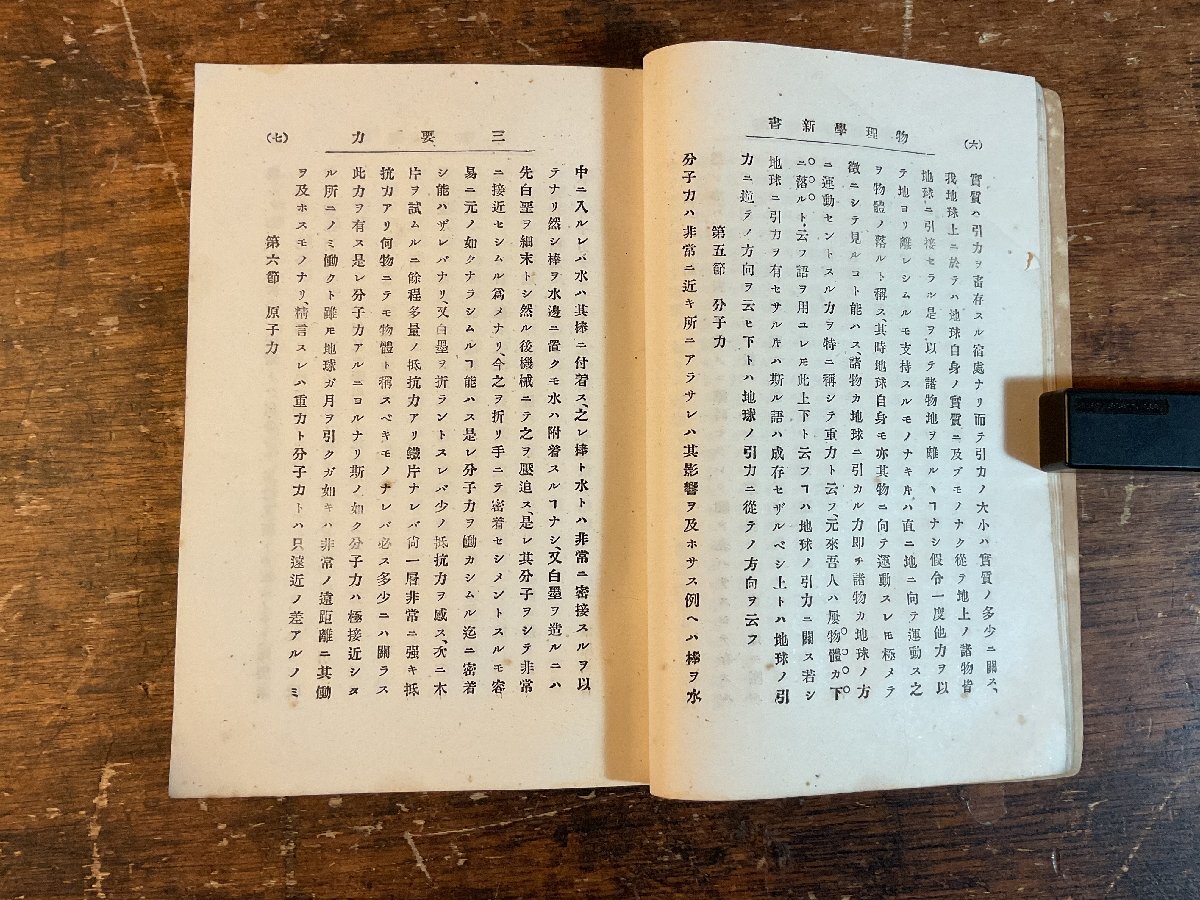 物理學新書
(六)
實質ハ引力ヲ畜存スル宿處ナリ而テ引力ノ大小ハ實質ノ多少ニ關ス、
我地球上ニ於テハ地球自身ノ實質ニ及ブモノナク從テ地上ノ諸物皆
地球ニ引接セラル是ヲ以テ諸物地ヲ離ルヽヿナシ假令一度他力ヲ以
テ地ヨリ離レシムルモ支持スルモノナキ片ハ直ニ地ニ向テ運動ス之
ヲ物體ノ落ルト稱ス、其時地球自身モ亦其物ニ向テ運動スレモ極メテ
微ニシテ見ルコト能ハス、諸物カ地球ニ引カル力即チ諸物カ地球ノ方
ニ運動セントスル力ヲ特ニ稱シテ重力ト云フ、元來吾人ハ屢物體カ下
ニ落ルト云フ語ヲ用ユレモ此上下ト云フヿハ地球ノ引力ニ關ス若シ
地球ニ引力ヲ有セサルキハ斯ル語ハ成存セザルベシ上トハ地球ノ引
力ニ逆テノ方向ヲ云ヒ下トハ地球ノ引力ニ從テノ方向ヲ云フ
第五節 分子力
分子力ハ非常ニ近キ所ニアラサレハ其影響ヲ及ホサス例ヘハ棒ヲ水
三要力
(七)
中ニ入ルレバ水ハ其棒ニ付着ス、之レ棒ト水トハ非常ニ密接スルヲ以
テナリ然シ棒ヲ水邊ニ置クモ水ハ附着スルヿナシ、又白墨ヲ造ルニハ
先白堊ヲ細末トシ然ル後機械ニテ之ヲ壓迫ス、是レ其分子ヲシテ非常
ニ接近セシムル爲メナリ、今之ヲ折リ手ニテ密着セシメントスルモ容
易ニ元ノ如クナラシムルヿ能ハス是レ分子力ヲ働カシムル迄ニ密着
シ能ハザレバナリ、又白墨ヲ折ラントスレバ少ノ抵抗力ヲ感ス、次ニ木
片ヲ試ムルニ餘程多量ノ抵抗力アリ鐵片ナレバ尙一層非常ニ强キ抵
抗力アリ何物ニテモ物體ト稱スベキモノナレバ必ス多少ニハ關ラス
此力ヲ有ス是レ分子力アルニヨルナリ斯ノ如ク分子力ハ極接近シタ
ル所ニノミ働クト雖モ地球ガ月ヲ引クガ如キハ非常ノ遠距離ニ其働
ヲ及ホスモノナリ、精言スレハ重力ト分子力トハ只遠近ノ差アルノミ
第六節 原子力